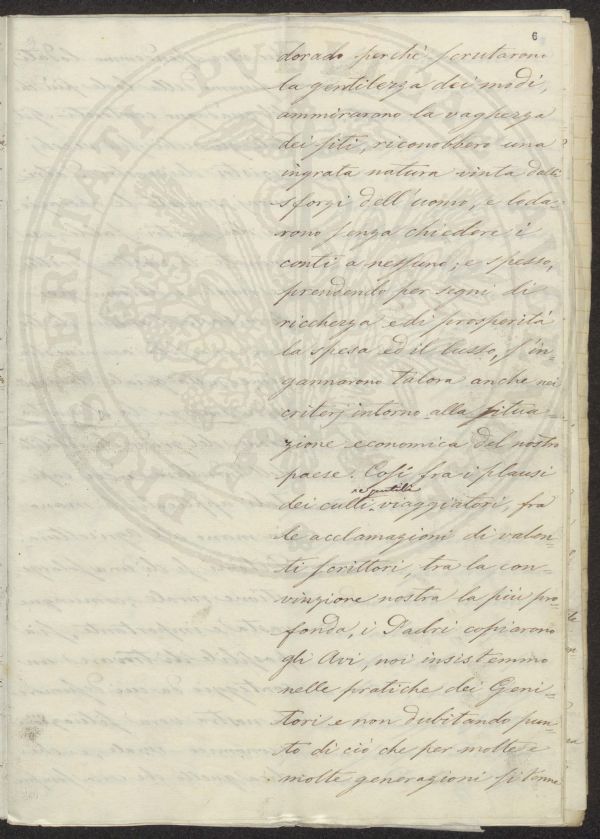 6
dorado perchè scrutarono
la gentilezza dei modi,
ammirarono la vaghezza
dei siti, riconobbero una
ingrata natura vinta dalli
sforzi dell'uomo, e loda-
rono senza chiedere i
conti a nessuno; e spesso,
prendendo per segni di
ricchezza e di prosperità
la spesa ed il lusso, s'in-
gannarono talora anche nei
criterj intorno alla situa-
zione economica del nostro
paese. Così fra i plausi
dei culti e gentili viaggiatori, fra
le acclamazioni di valen-
ti scrittori, tra la con-
vinzione nostra la più pro-
fonda, i Padri copiarono
gli Avi, noi insistemmo
nelle pratiche dei Geni-
tori e non dubitando pun-
to di ciò che per molte e
molte generazioni si tenne
POSTERITATI PVBLICAE